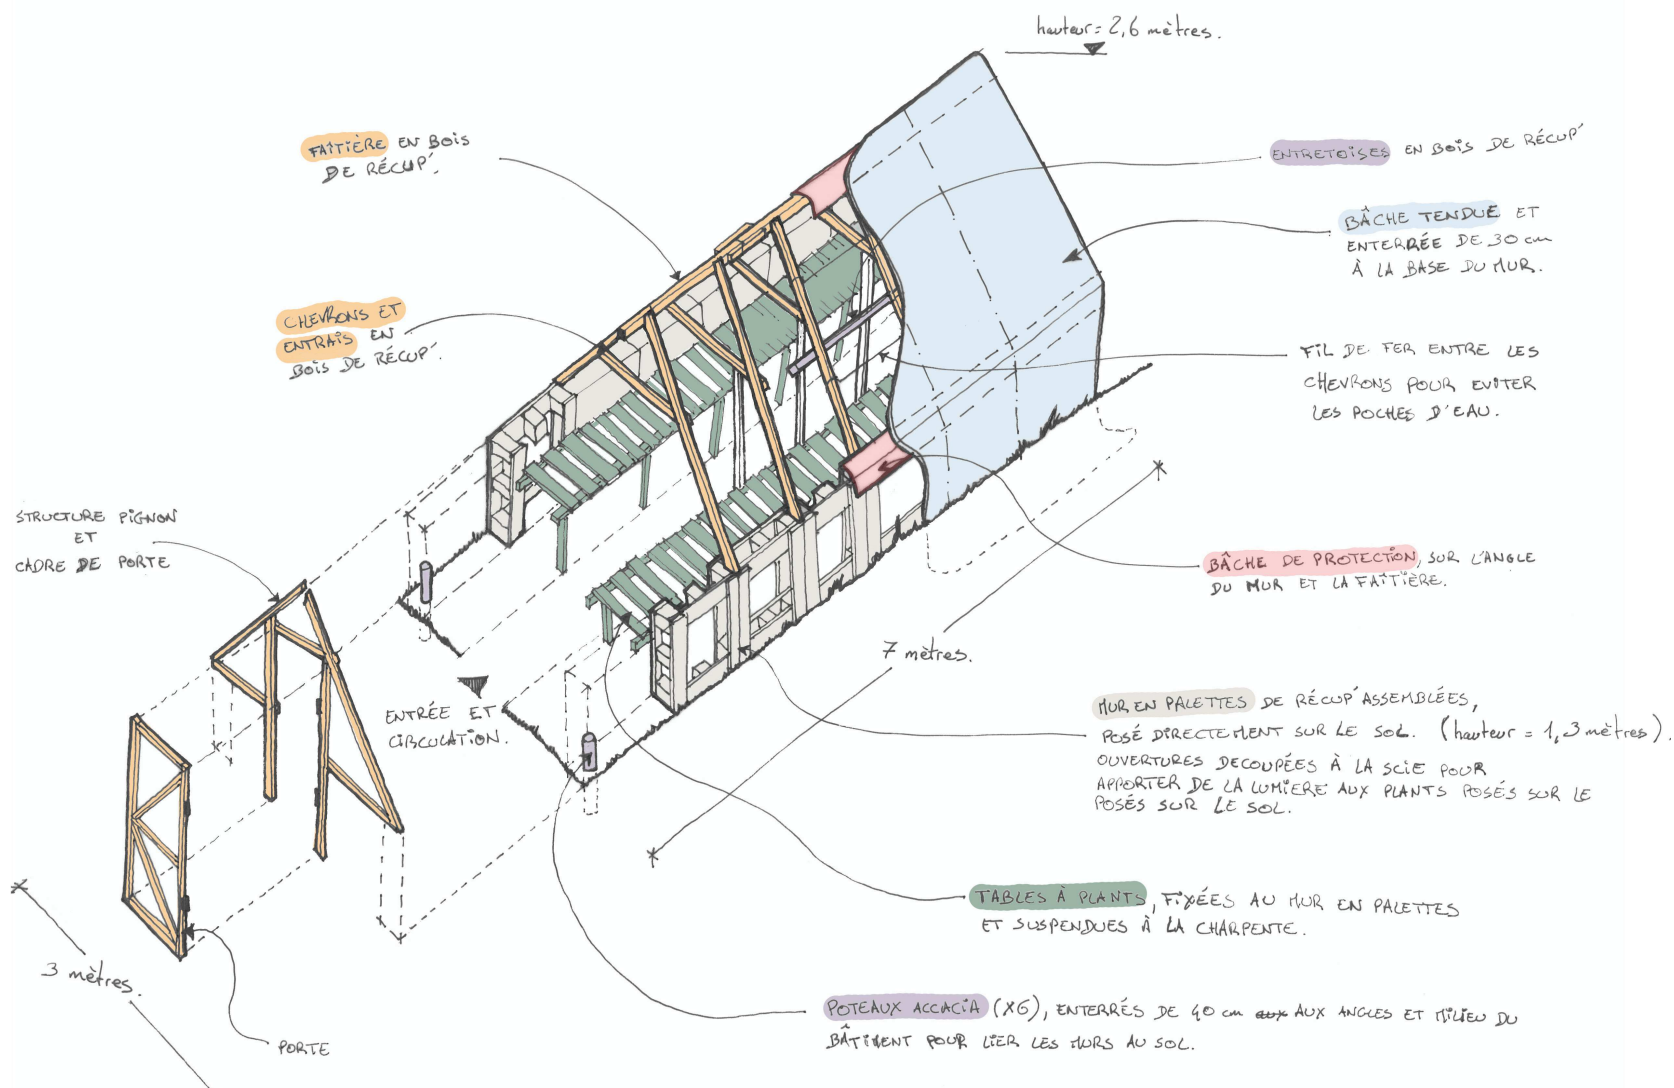 hauteur = 2,6 mètres.
FAÎTIÈRE EN BOIS
DE RÉCUP'.
ENTRETOISES EN BOIS DE RÉCUP'
BÂCHE TENDUE ET
ENTERRÉE DE 30 cm
À LA BASE DU MUR.
CHEVRONS ET
ENTRAIS EN
BOIS DE RÉCUP'.
FIL DE FER ENTRE LES
CHEVRONS POUR EVITER
LES POCHES D'EAU.
STRUCTURE PIGNON
ET
CADRE DE PORTE
BÂCHE DE PROTECTION, SUR L'ANGLE
DU MUR ET LA FAÎTIÈRE.
7 mètres.
ENTRÉE ET
CIRCULATION.
MUR EN PALETTES DE RÉCUP' ASSEMBLÉES,
POSÉ DIRECTEMENT SUR LE SOL. (hauteur = 1,3 mètres).
OUVERTURES DECOUPÉES À LA SCIE POUR
APPORTER DE LA LUMIERE AUX PLANTS POSÉS SUR LE
POSÉS SUR LE SOL.
TABLES À PLANTS, FIXÉES AU MUR EN PALETTES
ET SUSPENDUES À LA CHARPENTE.
3 mètres.
POTEAUX ACCACIA (X6), ENTERRÉS DE 40 cm aux AUX ANGLES ET MILIEU DU
BÂTIMENT POUR LIER LES MURS AU SOL.
PORTE